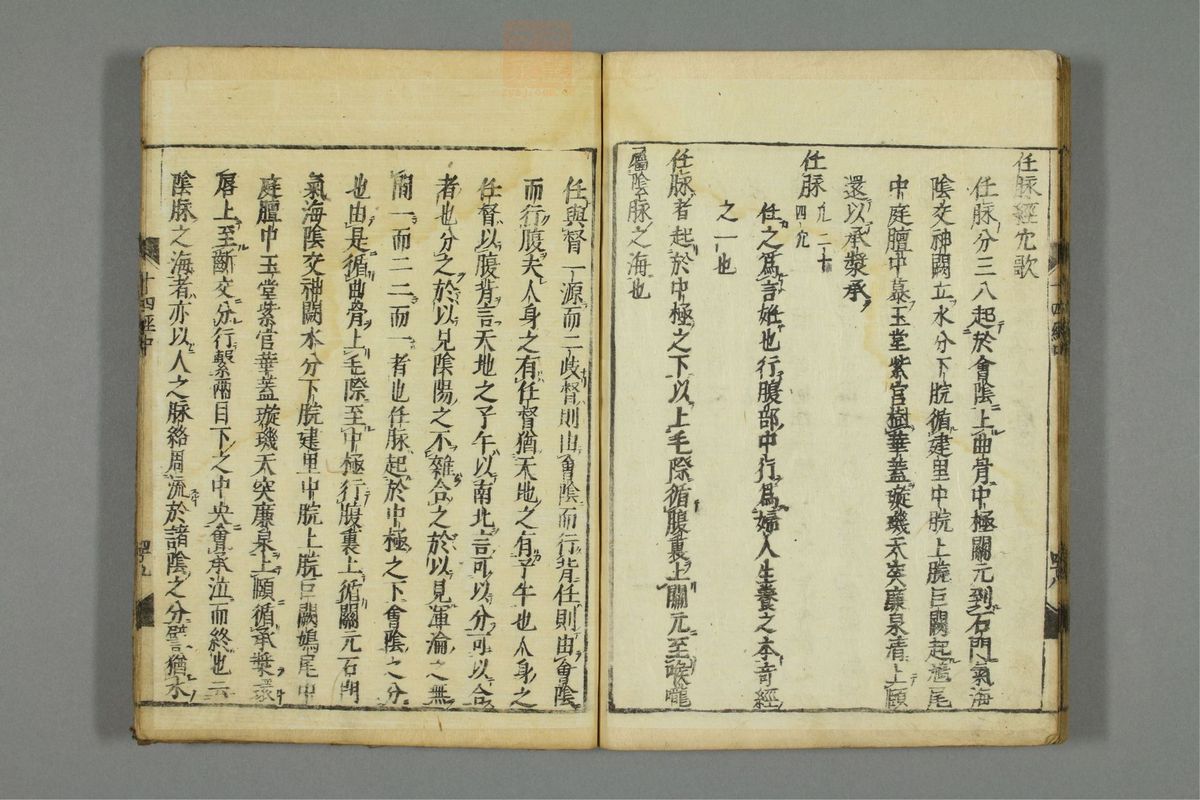 任脉經穴歌
任脉分三八起於會陰上曲骨中極關元到石門氣海
陰交神闕立水分下脘循建里中脘上脘巨闕起鳩尾
中庭膻中慕玉堂紫宮樹華蓋璇璣天突廉泉清上頤
還以承漿承
任脉 凡二十四穴
任之爲言妊也行腹部中行爲婦人生養之本奇經
之一也
任脉者起於中極之下以上毛際循腹裏上關元至喉嚨
屬陰脉之海也
任與督一源而二歧督則由會陰而行背任則由會陰
而行腹夫人身之有任督猶天地之有子午也人身之
任督以腹背言天地之子午以南北言可以分可以合
者也分之於以見陰陽之不雜合之於以見渾淪之無
間一而二二而一者也任脉起於中極之下會陰之分
也由是循曲骨上毛際至中極行腹裏上循關元石門
氣海陰交神闕水分下脘建里中脘上脘巨闕鳩尾中
庭膻中玉堂紫宮華蓋璇璣天突廉泉上頤循承漿還
唇上至齗交分行繫兩目下之中央會承泣而終也云
陰脉之海者亦以人之脉絡周流於諸陰之分譬猶水
十四經中
四十九